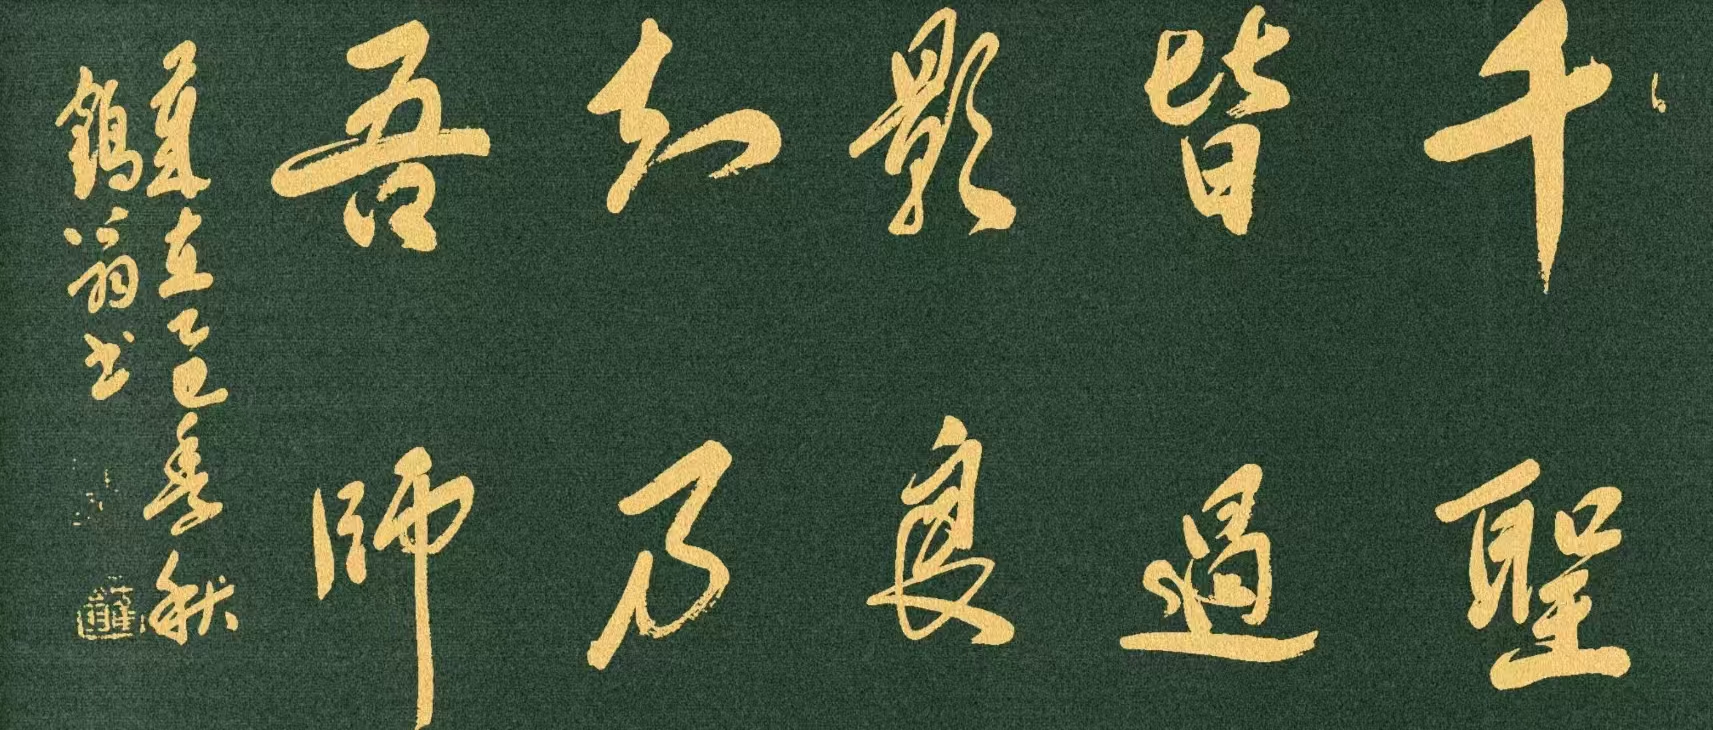 千聖
皆過
影良
知乃
吾師
歲在乙巳季秋
翁书